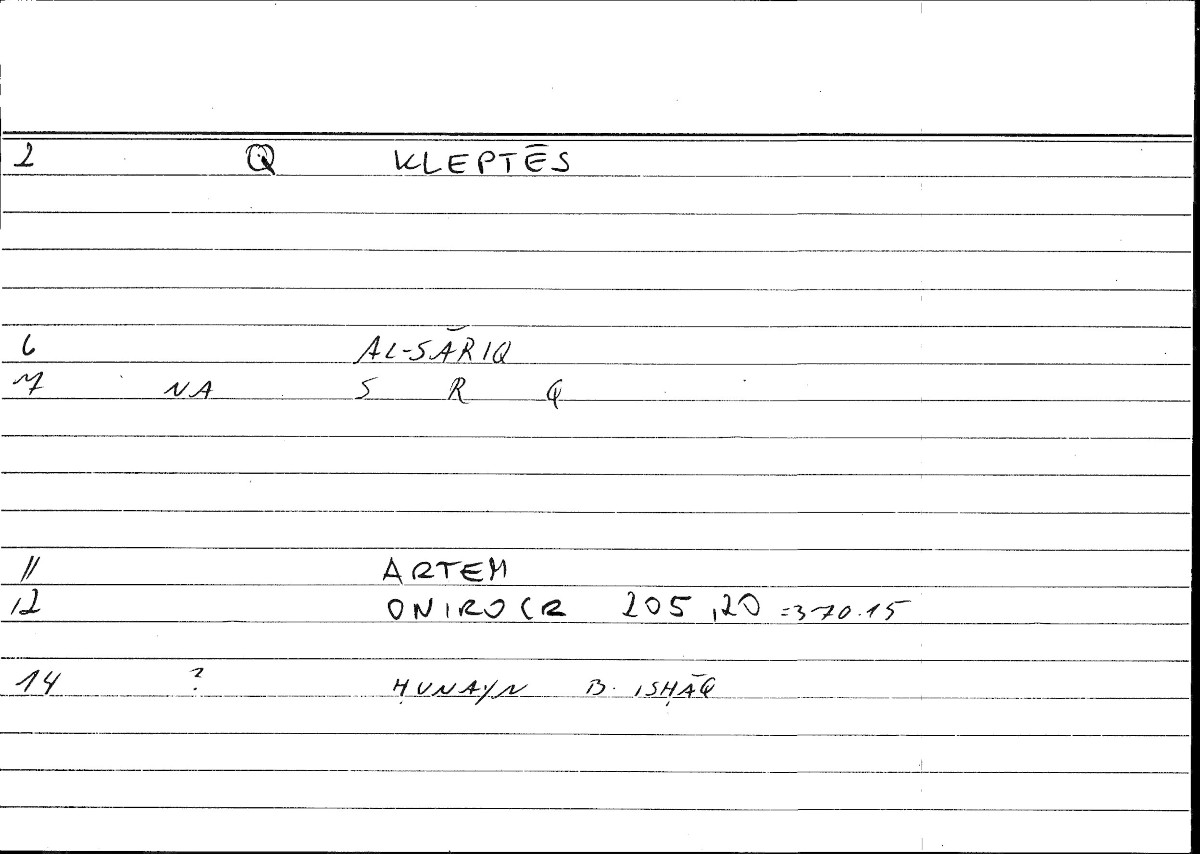 2 Q KLEPTĒS
6 AL-SĀRIQ
7 NA S R Q
11 ARTEM
12 ONIROCR 205,20 =370.15
14 ? ḤUNAYN B. ISḤĀQ